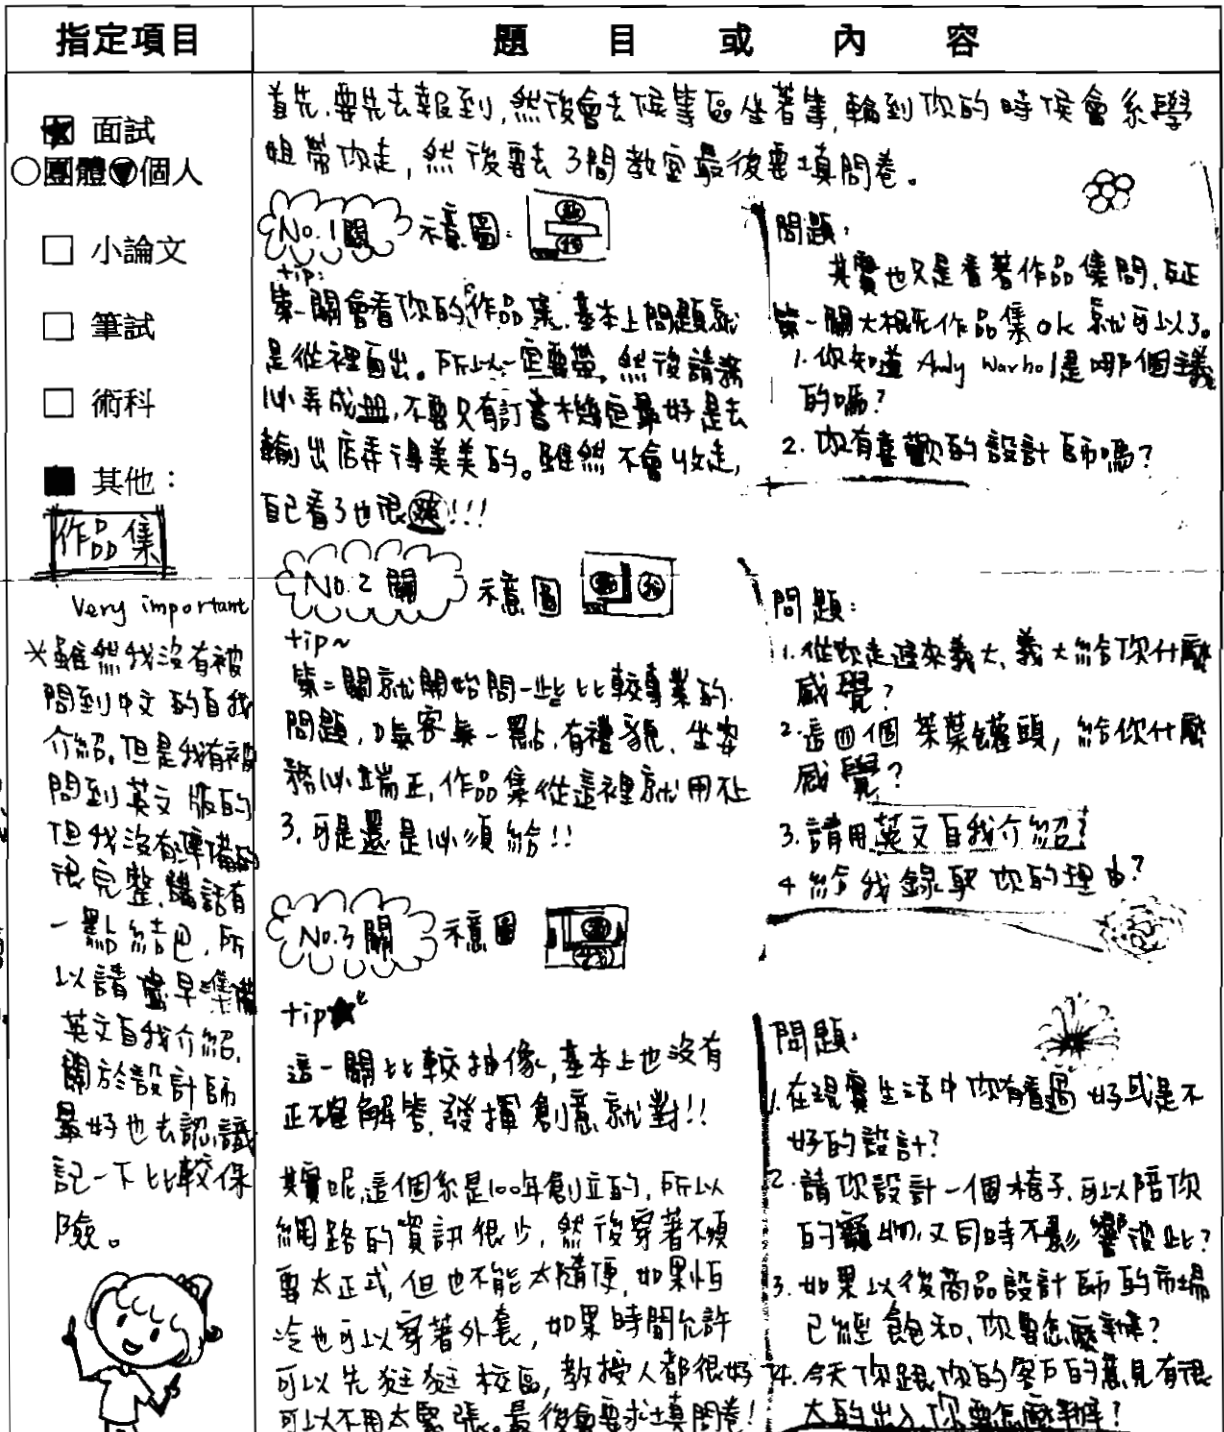 指定項目
題目或內容
面試
○團體 個人
□ 小論文
□ 筆試
□ 術科
■ 其他：
作品集
Very important
※雖然我沒有被
問到中文的自我
介紹，但是我有被
問到英文版的
但我沒有準備的
很完整，講話有
一點結巴，所
以請盡早準備
英文自我介紹，
關於設計師
最好也去認識
記一下比較保
險。
首先，要先去報到，然後會去候等區坐著等，輪到你的時候會系學
姐帶你走，然後要去3間教室最後要填問卷。
No.1關 示意圖：
tip:
第一關會看你的作品集，基本上問題就
是從裡面出。所以一定要帶，然後請務
必弄成冊，不要只有訂書機釘最好是去
輸出店弄得美美的。雖然不會收走，
自己看了也很爽!!!
問題：
其實也只是看著作品集問，反正
第一關大概死作品集ok就可以了。
1.你知道Andy Warhol是哪個主義
的嗎?
2.你有喜歡的設計師嗎?
No.2 關 示意圖
tip~
第二關就開始問一些比較專業的
問題，嗅客氣一點，有禮貌，坐姿
務必端正，作品集從這裡就用不上
了，可是還是必須給!!
問題：
1.從你走進來義大，義大給你什麼
感覺?
2.這四個茶葉罐頭，給你什麼
感覺?
3.請用英文自我介紹?
4 給我錄取你的理由?
No.3 關 示意圖
tip★
這一關比較抽像，基本上也沒有
正確解答，發揮創意就對!!
其實呢，這個系是100年創立的，所以
網路的資訊很少，然後穿著不須
要太正式，但也不能太隨便，如果怕
冷也可以穿著外套，如果時間允許
可以先逛逛校區，教授人都很好
可以不用太緊張。最後會要求填問卷!
問題：
1.在現實生活中你有看過好或是不
好的設計?
2.請你設計一個椅子，可以陪你
的寵物，又同時不影響彼此?
3.如果以後商品設計師的市場
已經飽和，你要怎麼辦?
4.今天你跟你的客戶的意見有很
大的出入，你要怎麼辦?